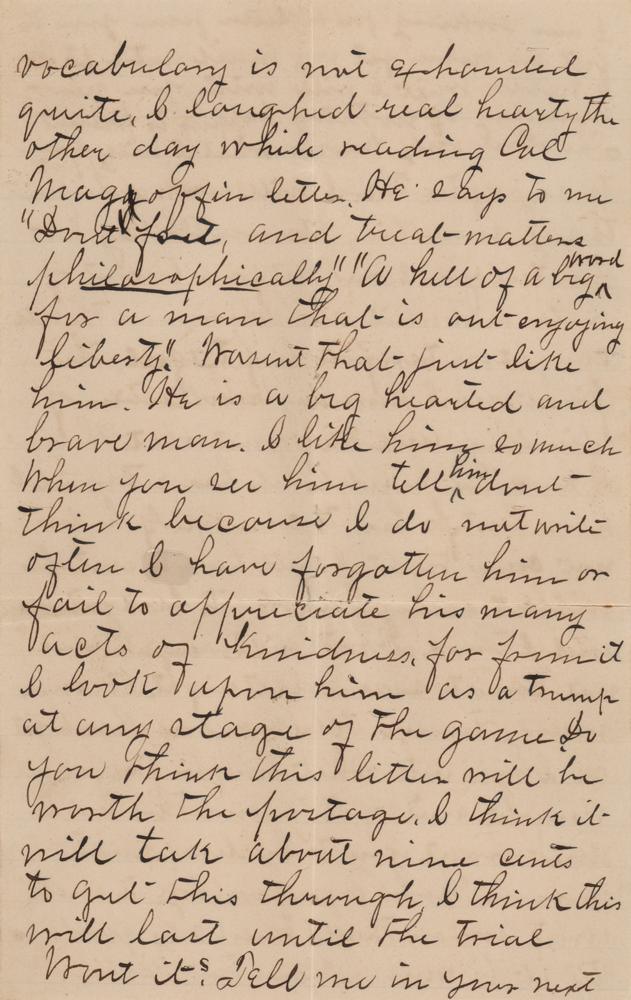 vocabulary is not exhausted
quite, I laughed real hearty the
other day while reading Col
Magoffin letter. He says to me
"Dont fret, and treat matters
philosophically" "A hell of a big word
for a man that is out enjoying
liberty". Wasent that just like
him. He is a big hearted and
brave man. I like him so much
When you see him tell him dont
think because I do not write
often I have forgotten him or
fail to appreciate his many
acts of kindness, for from it
I look upon him as a trump
at any stage of the game. Do
you think this letter will be
worth the postage. I think it
will tak about nine cents
to get this through, I think this
will last until the trial
Wont it? Tell me in your next